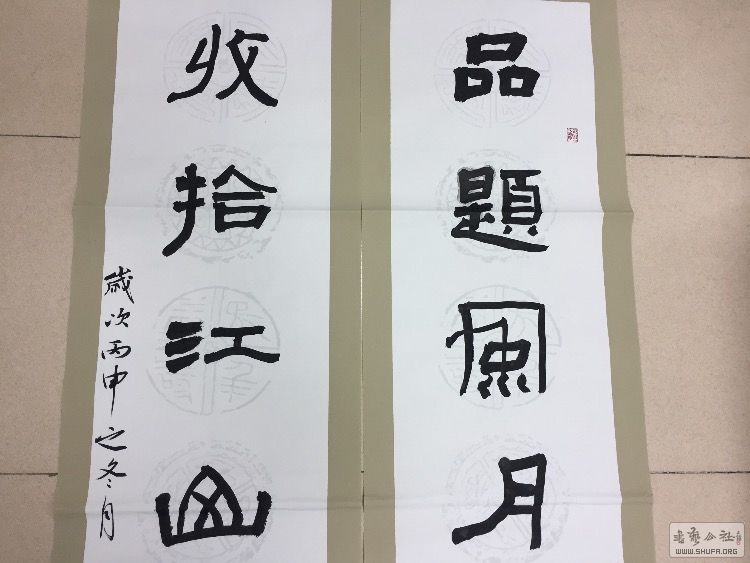 品題風月
收拾江山
歲次丙申之冬月
書藝公社
WWW.SHUFA.ORG